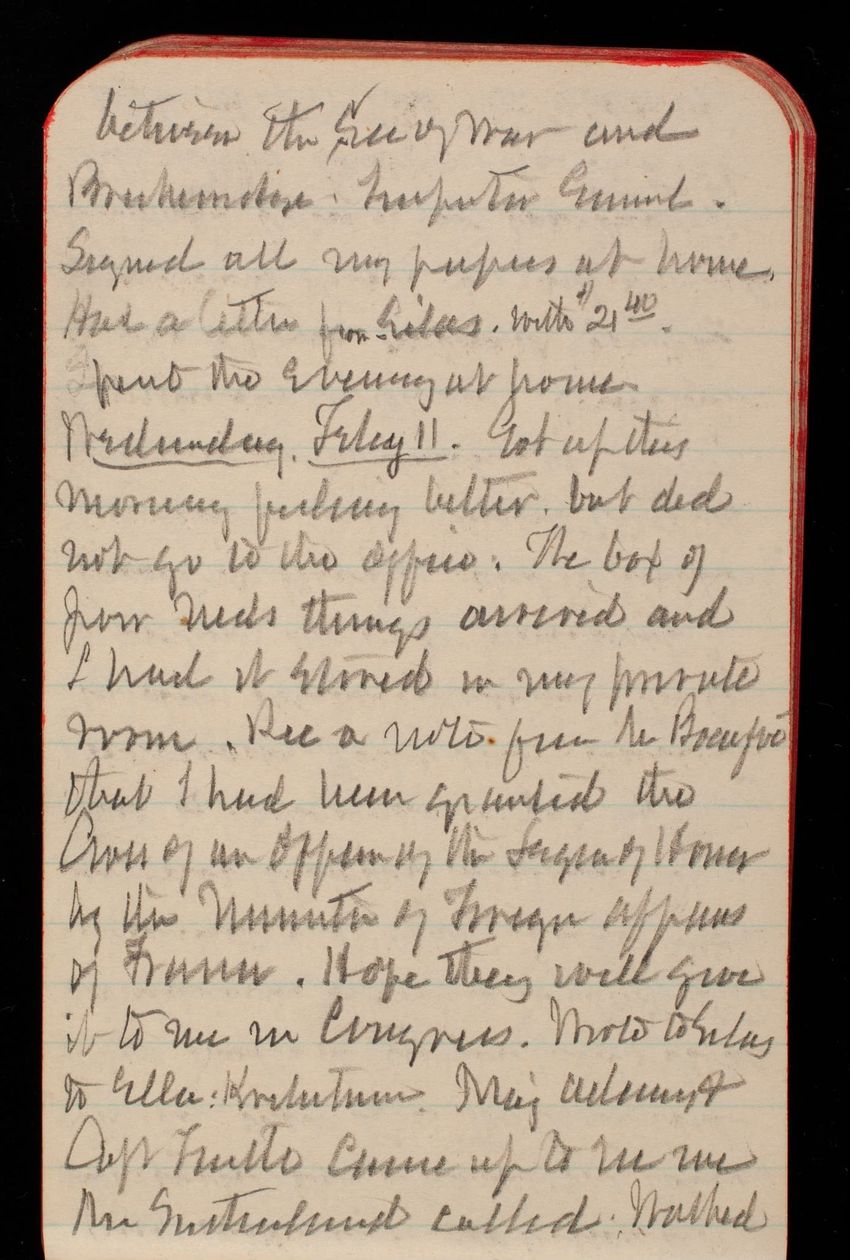 between the Sec of War and
Breckenridge. Inspector General.
Signed all my papers at home.
Had a letter from Silas. with $21 40.
Spent the Evening at home
Wednesday. Feby 11. Got up this
morning feeling better. but did
not go to the office. The box of
poor Neds things arrived and
I had it stored in my private
room. Rec a note from de
that I had been granted the
Cross of an Officer of the Legion of Honor
by the Minister of Foreign affairs
of France. Hope they will give
it to me in Congress. Wrote to Silas
to Ella. Maj
Capt came up to see me
Mr called. Walked